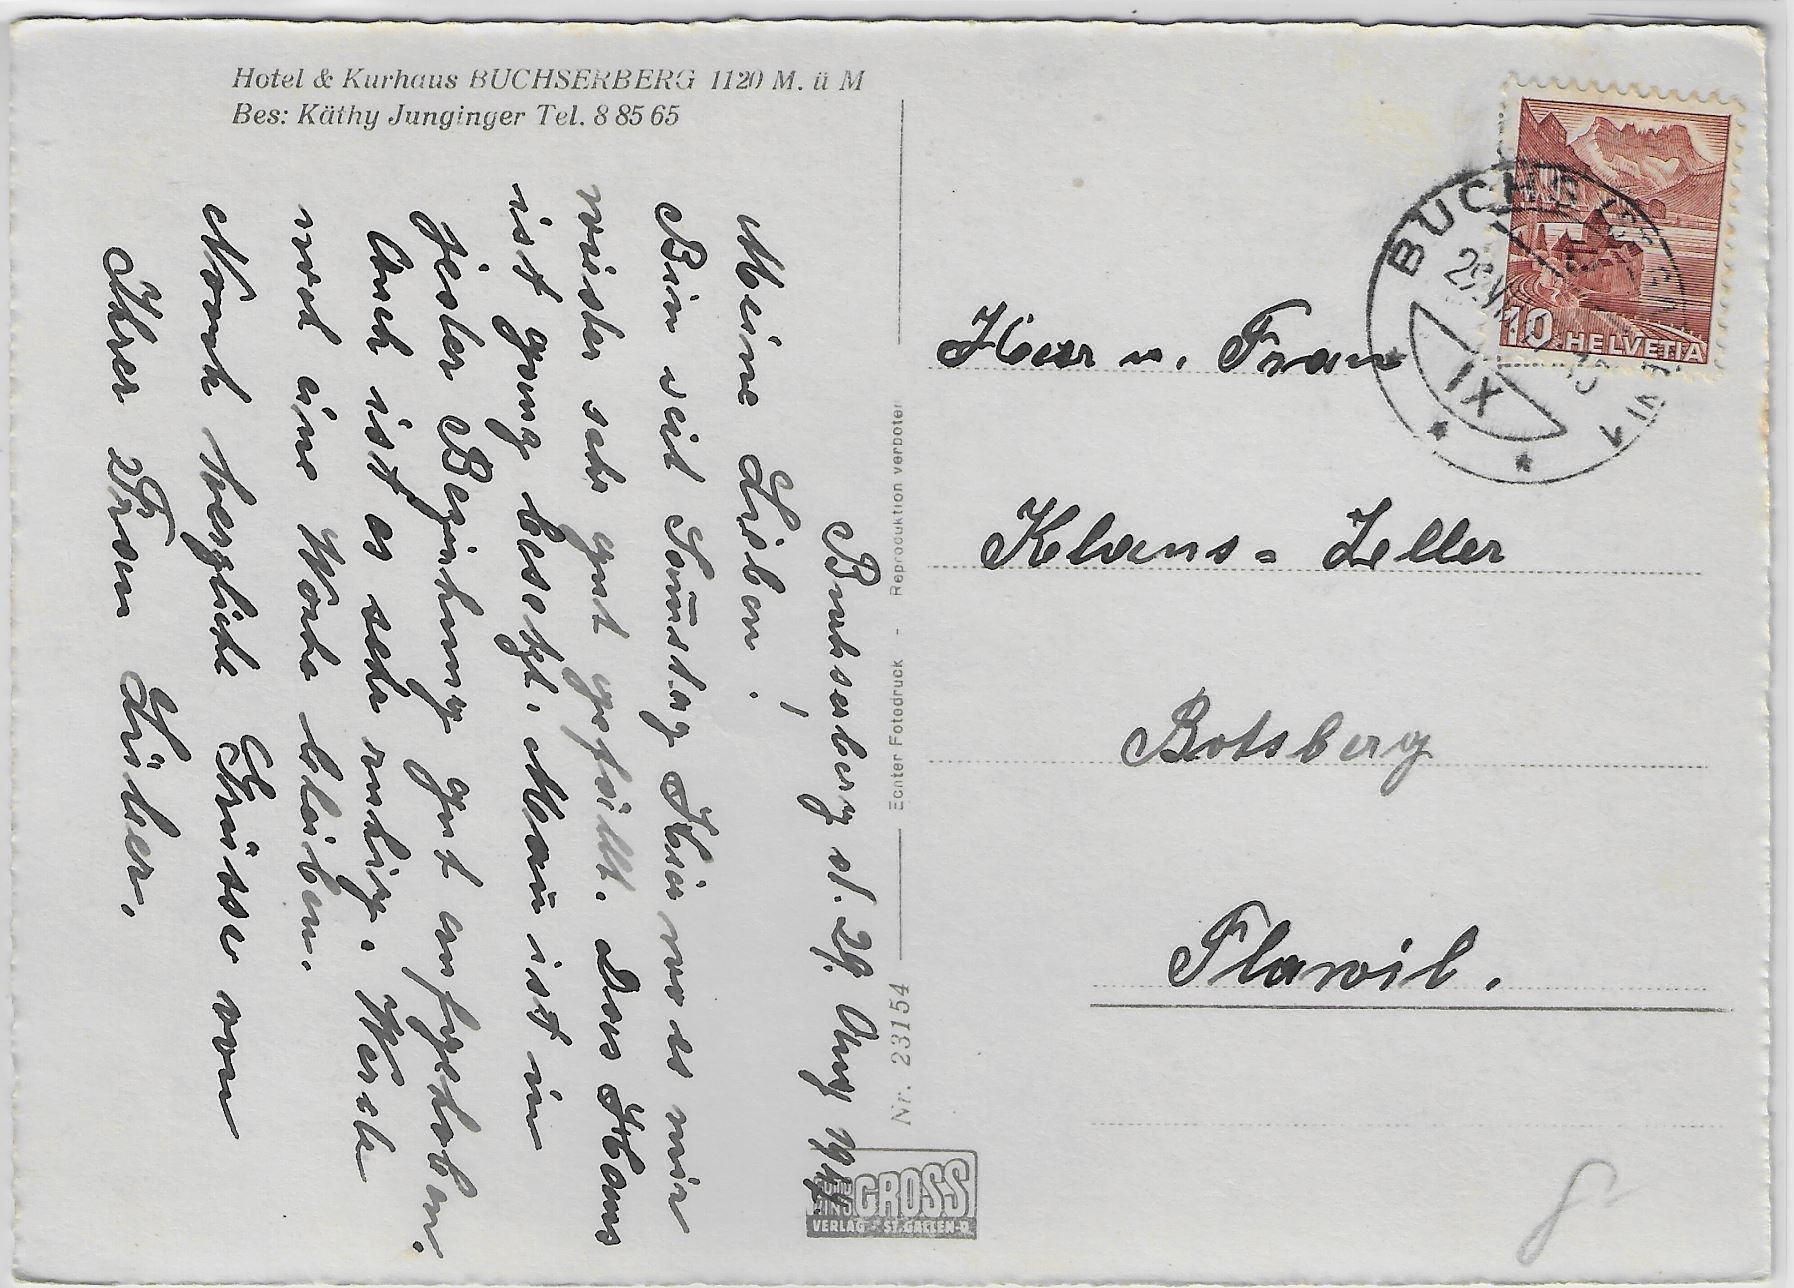 Hotel & Kurhaus BUCHSERBERG 1120 M. ü M
Bes: Käthy Junginger Tel. 8 85 65
Buchserberg d. 29. Aug 19
Meine Lieben!
Bin seit Samstag Hier wo es mir
wieder sehr gut gefällt. Das Haus
ist ganz besetzt. Man ist in
jeder Beziehung gut aufgehoben.
Auch ist es sehr ruhig. Werde
noch eine Woche bleiben.
Noch herzliche Grüsse von
Ihrer Frau Lüber.
Echter Fotodruck - Reproduktion verboten
Nr. 23154
FOTO
GROSS
VERLAG ST.GALLEN-O.
BUCHS
IX
10 HELVETIA
Herr u. Frau
Klaus-Zeller
Botsberg
Flawil.